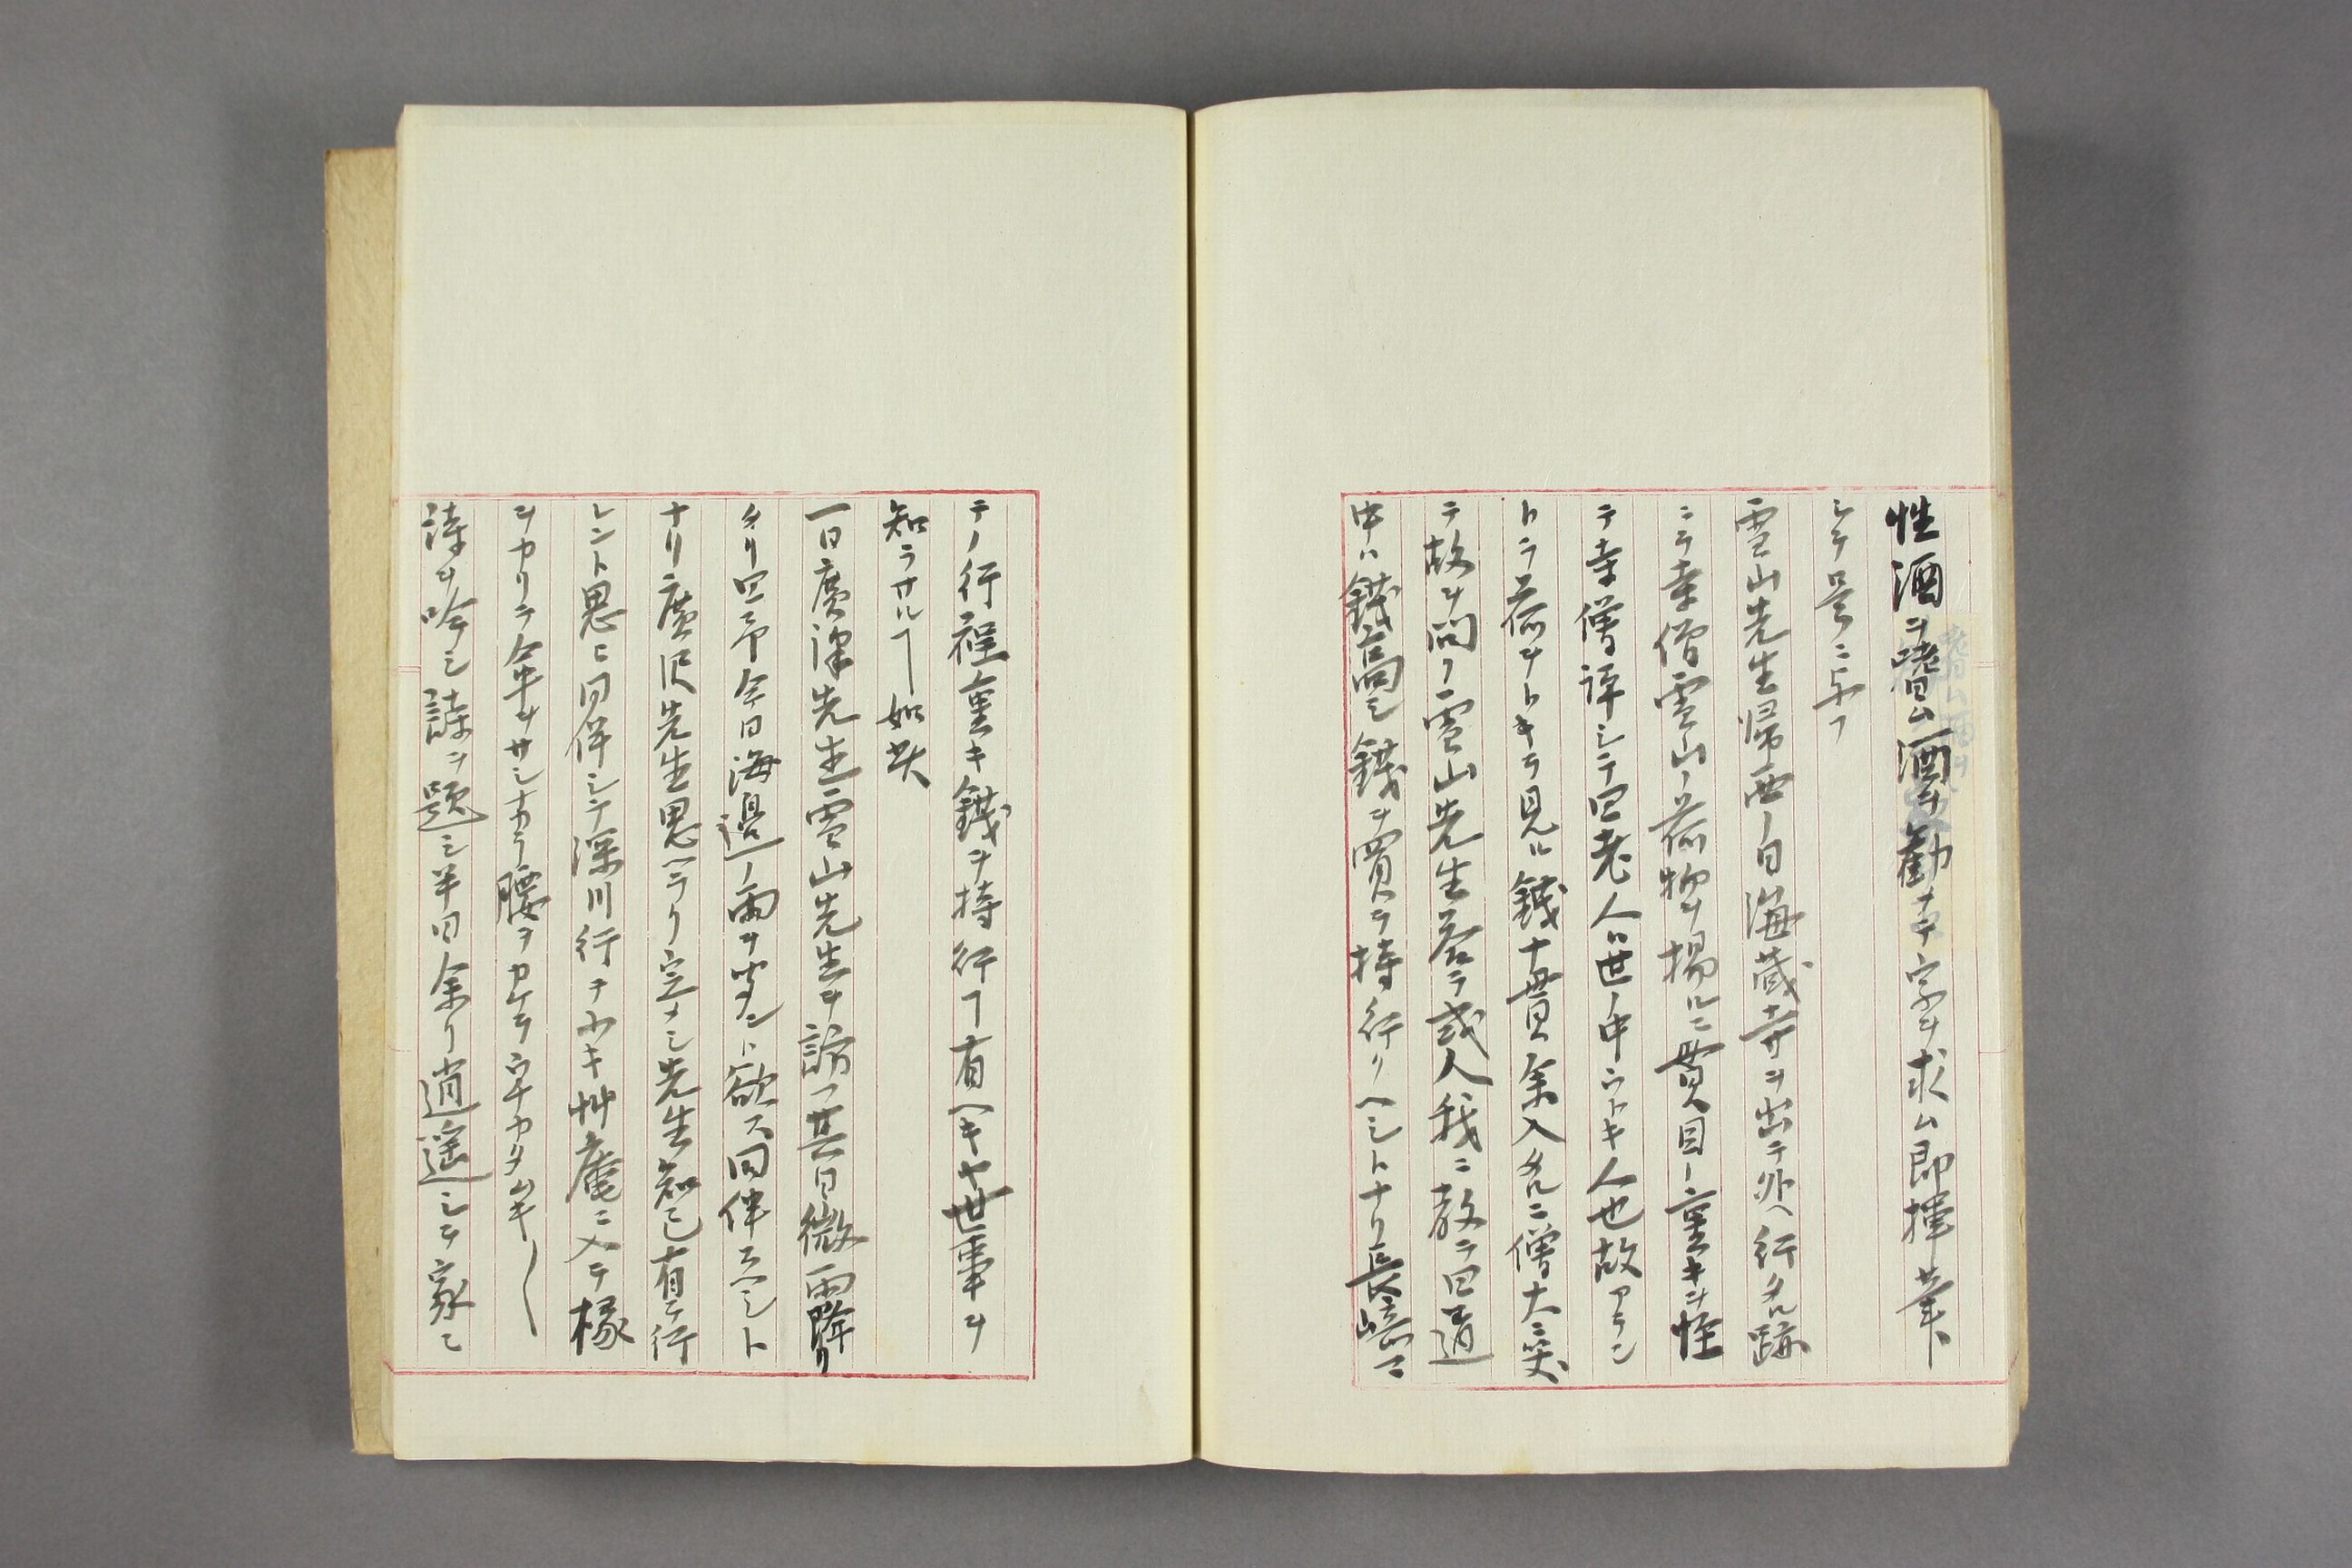 性酒ヲ嗜ム酒ヲ勸メテ字ヲ求ム即揮筆
シテ是ニ与フ
雪山先生帰西ノ日海蔵寺ヲ出テ外ヘ行タル跡
ニテ寺僧雪山ノ荷物ヲ揚ルニ貫目ノ重キヲ怪
テ寺僧譯シテ曰老人ハ世ノ中ウトキ人也故アラン
トテ荷ヲトキテ見ル銭十貫余入タルニ僧大ニ笑
テ故ヲ問フ雪山先生答テ或人我ニ教テ曰道
中ハ銭高シ銭ヲ買テ持行クヘシトナリ長崎マ
テノ行程重キ銭ヲ持行フ有ヘキヤ世事ヲ
知ラサルヿ如此
一日廣澤先生雪山先生ヲ訪フ其日微雨降リ
タリ曰予今日海邉ノ雨ヲ聞ント欲ス同伴スヘシト
ナリ廣沢先生思ヘラク定メシ先生知己有テ行
レント思ヒ同伴シテ深川行テ小キ艸庵ニ入テ椽
ヲカリテ傘ヲサシナカラ腰ヲカケテウチカタムキ〱
詩ヲ吟シ詩ヲ題シ半日余リ逍遥シテ家ニ